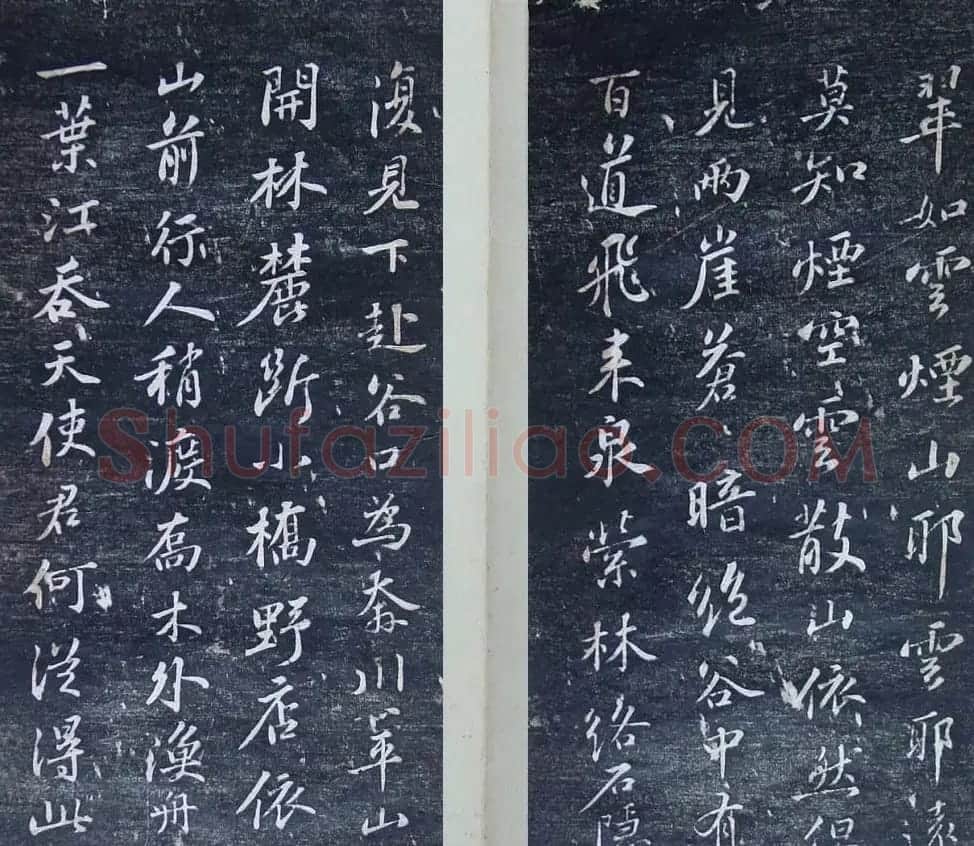 翠如雲煙山耶雲耶遠
莫知煙空雲散山依然但
見兩崖蒼々暗絕谷中有
百道飛来泉縈林絡石隱
復見下赴谷口為奔川平山
開林麓斷小橋野店依
山前行人稍渡喬木外漁舟
一葉江吞天使君何從得此
Shufaziliao.COM